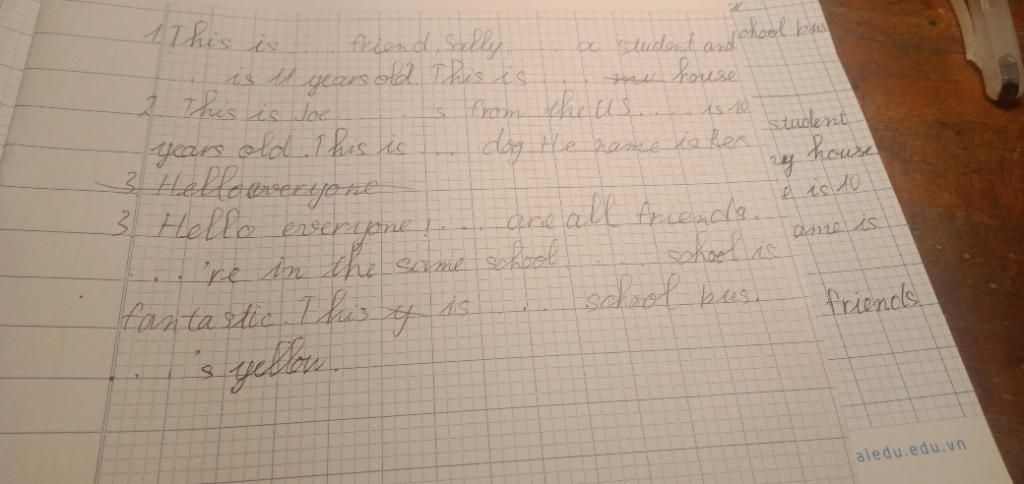 1. This is ... friend, Sally ... a student and
... is 11 years old. This is ... house
2. This is Joe ... 's from the US .... is 10
years old. This is ... dog He name is Rex
3. Hello everyone
3. Hello everyone! ... are all friends.
... 're in the same school ... school is
fantastic. This is ... school bus.
... 's yellow.
chool bus
student
y house
e is 10
ame is
friends
aledu.edu.vn